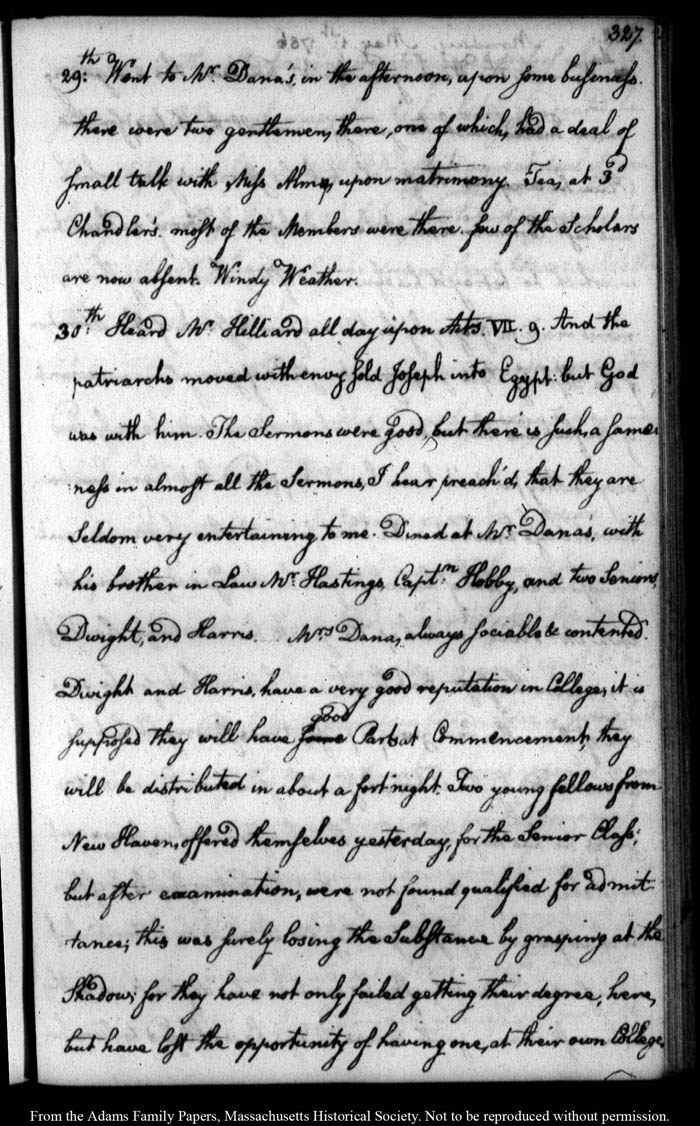 327.
29:th Went to Mr. Dana's, in the afternoon, upon some business.
there were two gentlemen, there, one of which, had a deal of
small talk with Miss Almy, upon matrimony. Tea, at 3d
Chandler's. most of the Members were there. few of the Scholars
are now absent. Windy Weather.
30:th Heard Mr. Hilliard all day upon Acts. VII. 9. And the
patriarchs moved with envy, sold Joseph into Egypt: but God
was with him. The Sermons were good, but there is such, a same
:ness in almost all the Sermons, I hear preach'd, that they are
Seldom very entertaining to me. Dined at Mr. Dana's, with
his brother in Law Mr. Hastings, Captn. Hobby, and two Seniors,
Dwight, and Harris. Mrs Dana, always sociable & contented.
Dwight and Harris, have a very good reputation in College, it is
good
supposed they will have some Parts at Commencement, they
will be distributed in about a fort'night. Two young fellows from
New Haven, offered themselves yesterday, for the Senior Class;
but after examination, were not found qualified for admit
tance; this was surely losing the Substance by grasping at the
Shadow; for they have not only failed getting their degree, here,
but have lost the opportunity of having one, at their own College.
From the Adams Family Papers, Massachusetts Historical Society. Not to be reproduced without permission.